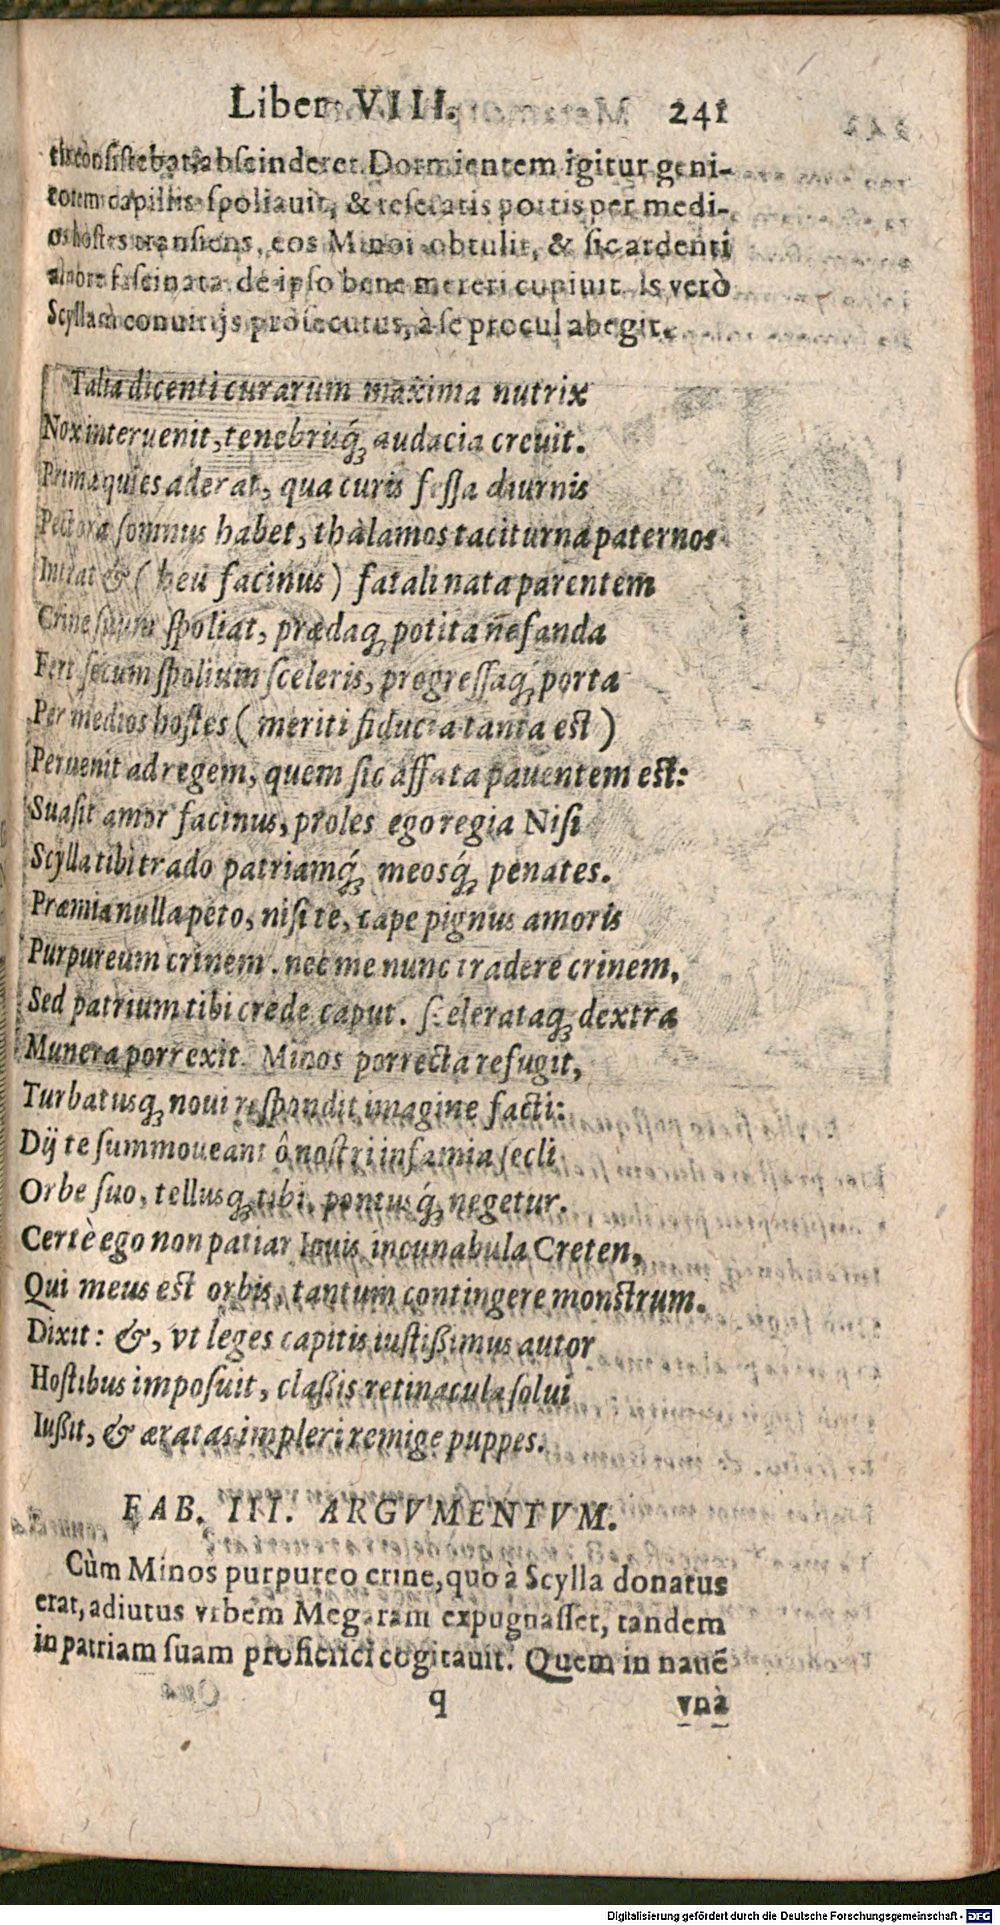 Liber VIII. 241
tis consistebat, abscinderet. Dormientem igitur geni-
torem capillis spoliauit, & reseratis portis per medi-
os hostes transiens, eos Minoi obtulit, & sic ardenti
amore fascinata de ipso bene mereri cupiuit. Is verò
Scyllam conuitijs prosecutus, à se procul abegit.
Talia dicenti curarum maxima nutrix
Nox interuenit, tenebrisq́; audacia creuit.
Prima quies aderat, qua curis fessa diurnis
Pectora somnus habet, thalamos taciturna paternos
Intrat & (heu facinus) fatali nata parentem
Crine suum spoliat, prædaq; potita nefanda
Fert secum spolium sceleris, progressaq́; porta
Per medios hostes (meriti fiducia tanta est)
Peruenit ad regem, quem sic affata pauentem est:
Suasit amor facinus, proles ego regia Nisi
Scylla tibi trado patriamq́; meosq́; penates.
Præmia nulla peto, nisi te, cape pignus amoris
Purpureum crinem. nec me nunc tradere crinem,
Sed patrium tibi crede caput. scelerataq; dextra
Munera porrexit. Minos porrecta refugit,
Turbatusq; noui respondit imagine facti:
Dij te summoueant ô nostri infamia secli
Orbe suo, tellusq; tibi, pontusq́; negetur.
Certè ego non patiar Iouis incunabula Creten,
Qui meus est orbis, tantum contingere monstrum.
Dixit: &, vt leges capitis iustißimus autor
Hostibus imposuit, claßis retinacula solui
Iußit, & æratas impleri remige puppes.
FAB. III. ARGVMENTVM.
Cùm Minos purpureo crine, quo à Scylla donatus
erat, adiutus vrbem Megaram expugnasset, tandem
in patriam suam proficisci cogitauit. Quem in nauẽ
q vnà
Digitalisierung gefördert durch die Deutsche Forschungsgemeinschaft - DFG